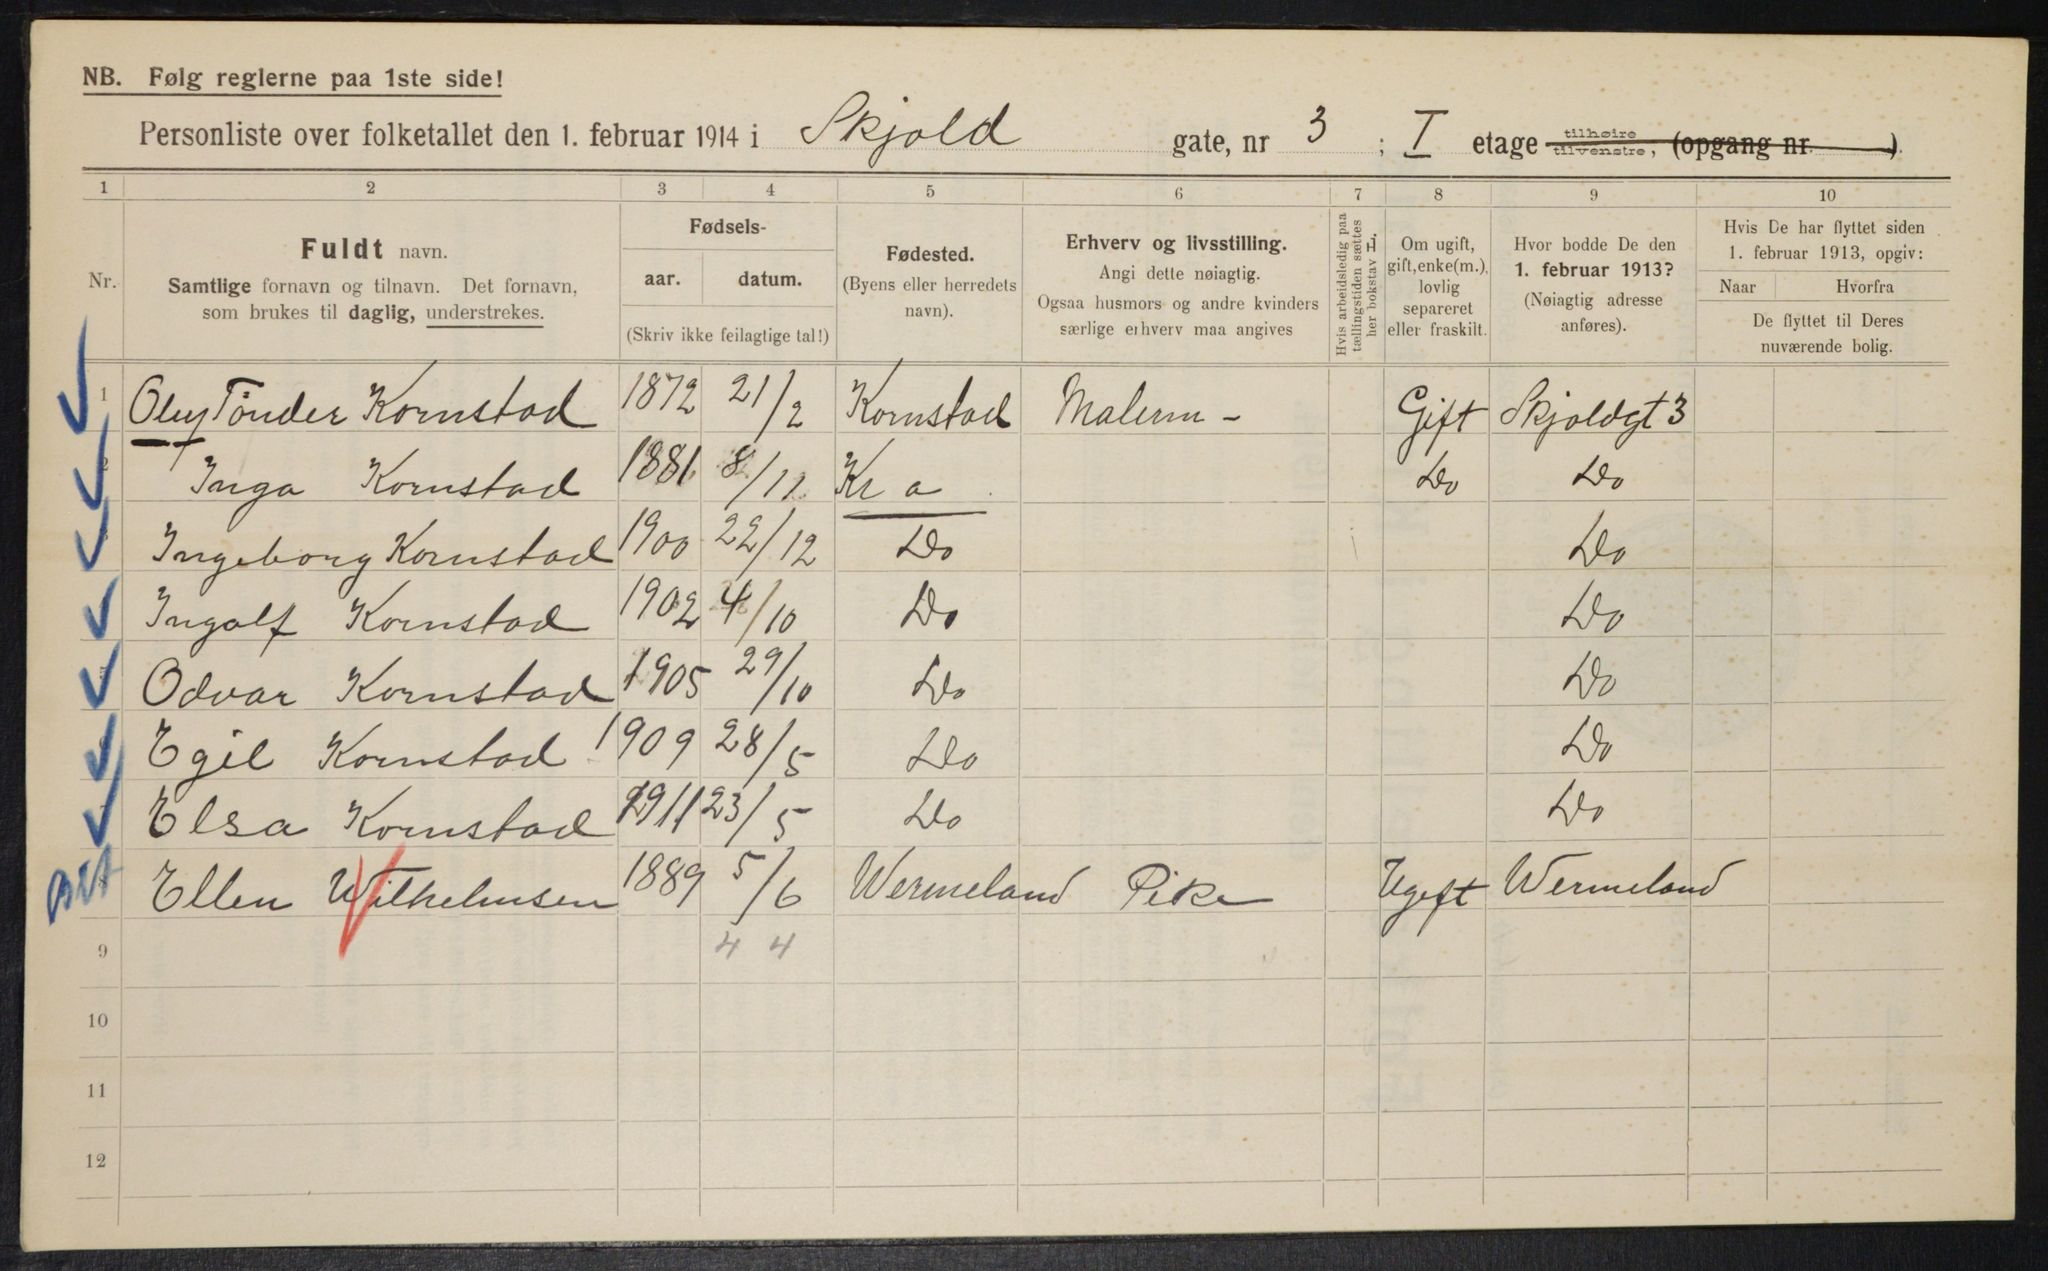 NB. Følg reglerne paa 1ste side!
Personliste over folketallet den 1. februar 1914 i Skjold gate, nr 3 ; I etage tilhøire tilvenstre, (opgang nr. )
1 2 3 4 5 6 7 8 9 10
Nr.
Fuldt navn.
Samtlige fornavn og tilnavn. Det fornavn,
som brukes til daglig, understrekes.
Fødsels-
aar. datum.
(Skriv ikke feilagtige tal!)
Fødested.
(Byens eller herredets
navn).
Erhverv og livsstilling.
Angi dette nøiagtig.
Ogsaa husmors og andre kvinders
særlige erhverv maa angives
Hvis arbeidsledig paa
tællingstiden sættes
her bokstav L.
Om ugift,
gift, enke(m.),
lovlig
separeret
eller fraskilt.
Hvor bodde De den
1. februar 1913?
(Nøiagtig adresse
anføres).
Hvis De har flyttet siden
1. februar 1913, opgiv:
Naar Hvorfra
De flyttet til Deres
nuværende bolig.
1 Oluf Tönder Kornstad 1872 21/2 Kornstad Gift Skjoldgt 3
2 Inga Kornstad 1881 8/11 Kr a Do Do
3 Ingeborg Kornstad 1900 22/12 Do Do
Ingolf Kornstad 1902 4/10 Do Do
5 Odvar Kornstad 1905 29/10 Do Do
6 Egil Kornstad 1909 28/5 Do Do
7 Elsa Kornstad 1911 23/5 Do Do
8 Ellen Wilhelmsen 1889 5/6 Wermeland Pike Ugift Wermeland
9 4 4
10
11
12